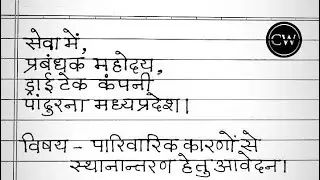 CW
सेवा में,
प्रबंधक महोदय,
ड्राई टेक कंपनी
पांढुरना मध्यप्रदेश।
विषय – पारिवारिक कारणों से
स्थानान्तरण हेतु आवेदन।